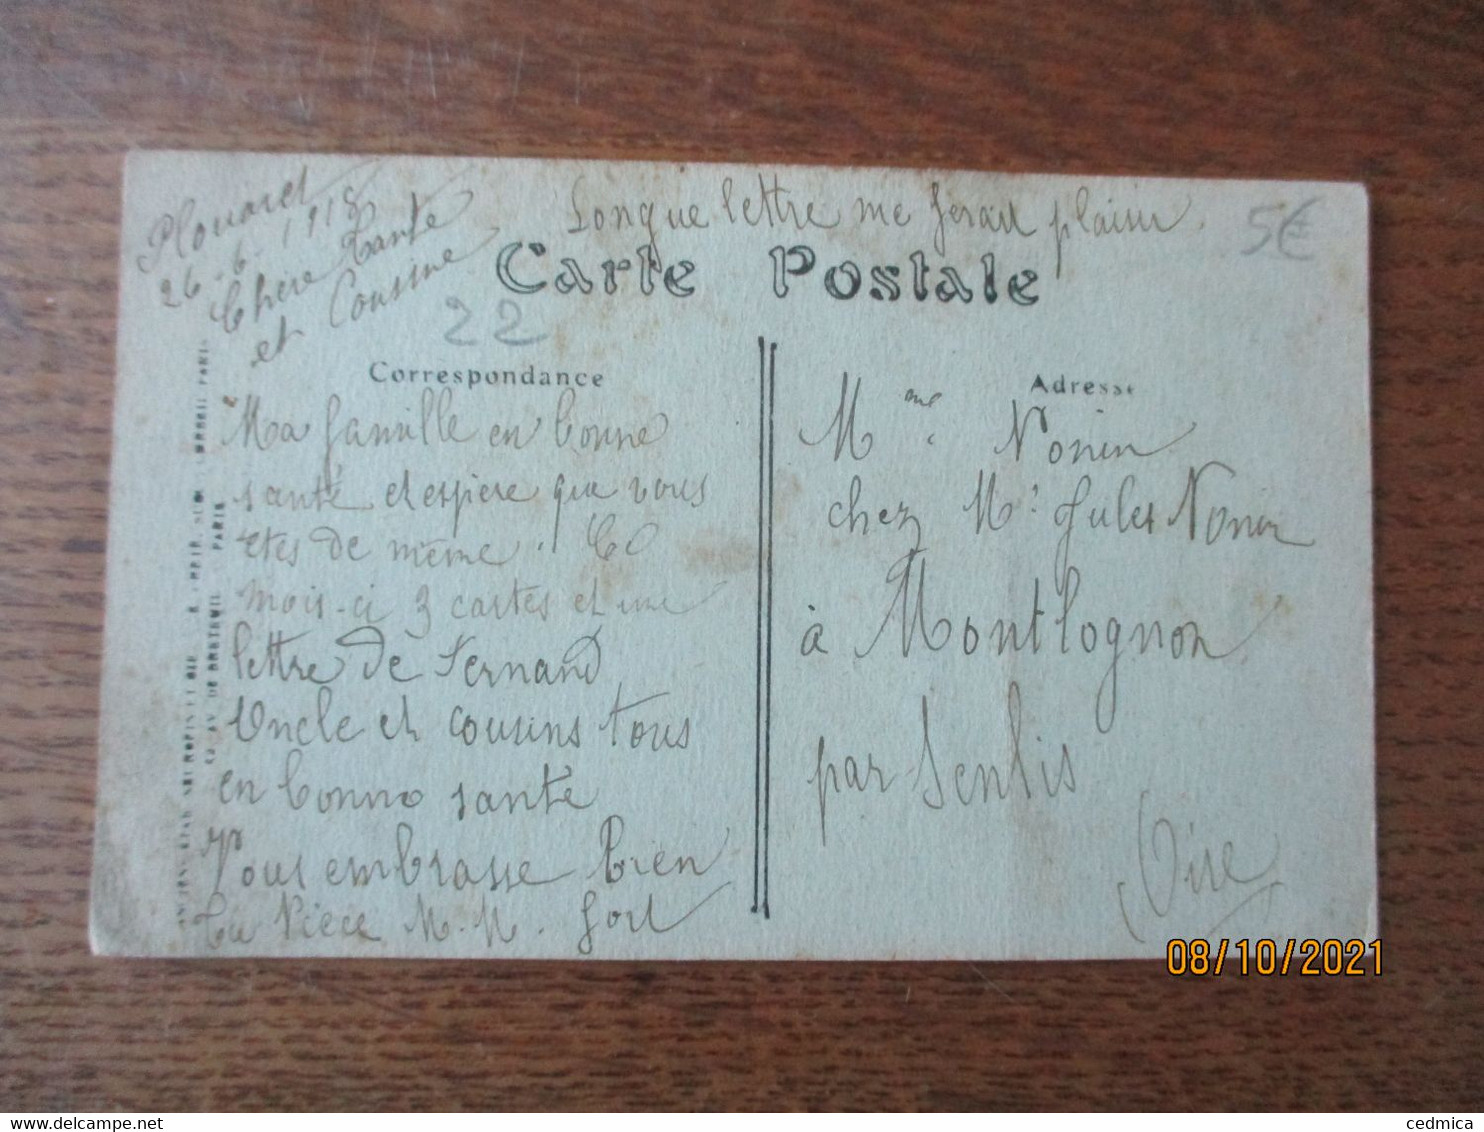 Longue lettre me ferait plaisir.
5€
Plouaret
26-6-1918
Chère Tante
et Cousine
Carte Postale
22
Correspondance
Ma famille en bonne
santé et espère que vous
etes de même. Ce
mois-ci 3 cartes et une
lettre de Fernand
Oncle et cousins tous
en bonne santé
Vous embrasse bien
Ta Nièce M.M.
Adresse
Mme Nonin
chez Mr Jules Nonin
à Montlognon
par Senlis
(Oise)
AV. DE BRETEUIL PARIS
08/10/2021
cedmica